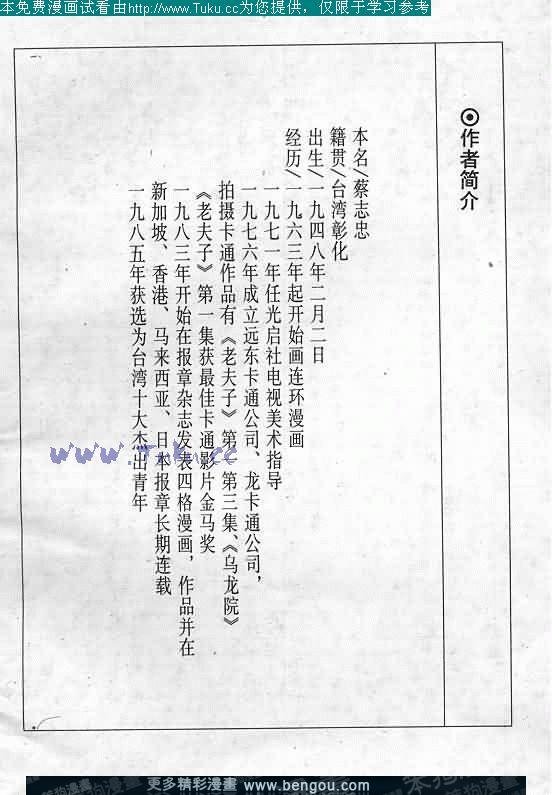 本免费漫画试看由http://www.Tuku.cc为您提供，仅限于学习参考
⊙作者简介
本名/蔡志忠
籍贯/台湾彰化
出生/一九四八年二月二日
经历/一九六三年起开始画连环漫画
一九七一年任光启社电视美术指导
一九七六年成立远东卡通公司、龙卡通公司，
拍摄卡通作品有《老夫子》第 第三集、《乌龙院》
《老夫子》第一集获最佳卡通影片金马奖
一九八三年开始在报章杂志发表四格漫画，作品并在
新加坡、香港、马来西亚、日本报章长期连载
一九八五年获选为台湾十大杰出青年
www.Tuku.cc
更多精彩漫畫 www.bengou.com